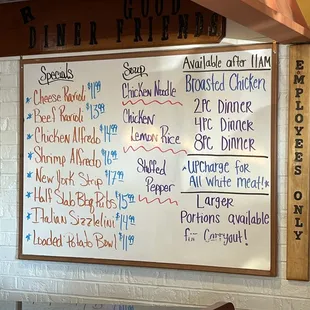 GOOD
DINER FRIENDS
Specials
Cheese Ravioli $11.99
Beef Ravioli $13.99
Chicken Alfredo $14.99
Shrimp Alfredo $16.99
New York Strip $17.99
Half Slab BBQ Ribs $15.99
Italian Sizzletini $14.99
Loaded Potato Bowl $11.99
Soup
Chicken Noodle
Chicken
Lemon Rice
Stuffed
Pepper
Available after 11AM
Broasted Chicken
2PC Dinner
4PC Dinner
8PC Dinner
*UPCharge for
All White meat!*
Larger
Portions available
for Carryout!
EMPLOYEES ONLY